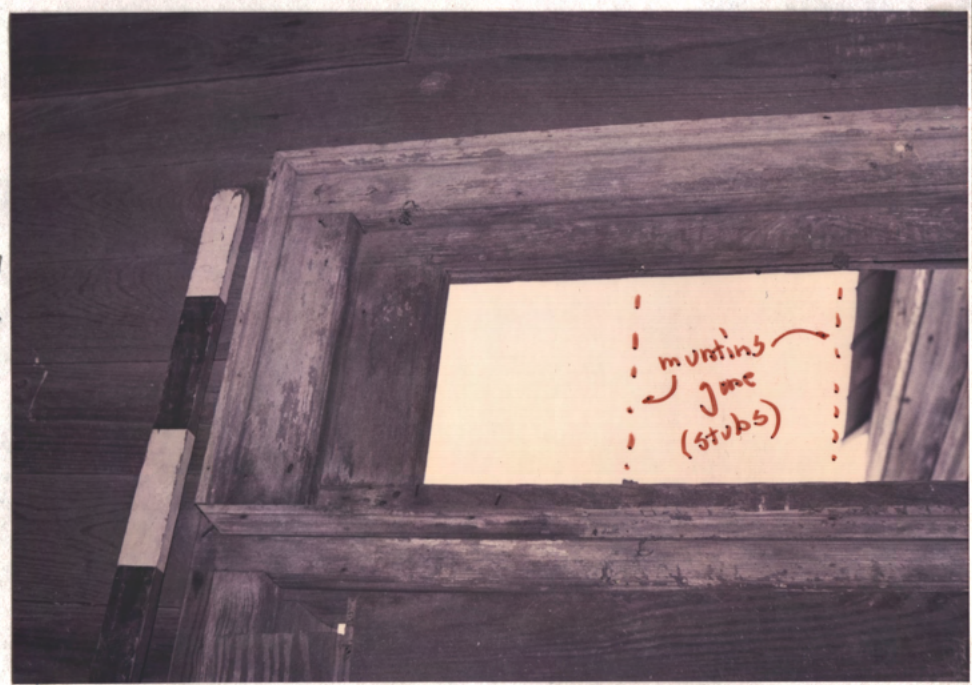 muntins
gone
(stubs)